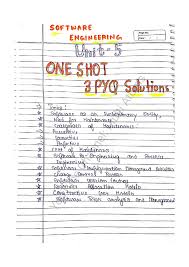 SOFTWARE
ENGINEERING
Unit-5
ONE SHOT
3 PYQ Solutions
Topics :
Software as an Evolutionary Entity,
Need for Maintenance
Categories of Maintenance
Preventive
Corrective
Perfective
Cost of Maintenance
Software Re-Engineering and Reverse
Engineering
Software Configuration Management Activities
Change Control Process
Software Version Control
Estimation
Constructive Cost Models
Software Risk Analysis and Management